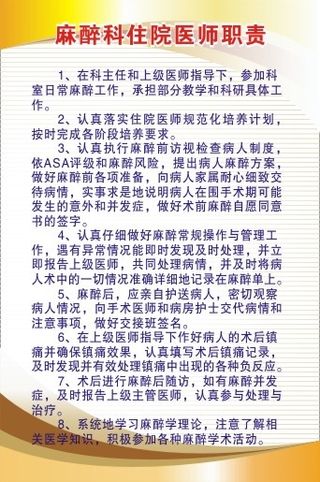 麻醉科住院医师职责
1、在科主任和上级医师指导下，参加科
室日常麻醉工作，承担部分教学和科研具体工
作。
2、认真落实住院医师规范化培养计划，
按时完成各阶段培养要求。
3、认真执行麻醉前访视检查病人制度，
依ASA评级和麻醉风险，提出病人麻醉方案，
做好麻醉前各项准备，向病人家属耐心细致交
待病情，实事求是地说明病人在围手术期可能
发生的意外和并发症，做好术前麻醉自愿同意
书的签字。
4、认真仔细做好麻醉常规操作与管理工
作，遇有异常情况能即时发现及时处理，并立
即报告上级医师，共同处理病情，并及时将病
人术中的一切情况准确详细地记录在麻醉单上。
5、麻醉后，应亲自护送病人，密切观察
病人情况，向手术医师和病房护士交代病情和
注意事项，做好交接班签名。
6、在上级医师指导下作好病人的术后镇
痛并确保镇痛效果，认真填写术后镇痛记录，
及时发现并有效处理镇痛中出现的各种负反应。
7、术后进行麻醉后随访，如有麻醉并发
症，及时报告上级主管医师，认真参与处理与
治疗。
8、系统地学习麻醉学理论，注意了解相
关医学知识，积极参加各种麻醉学术活动。